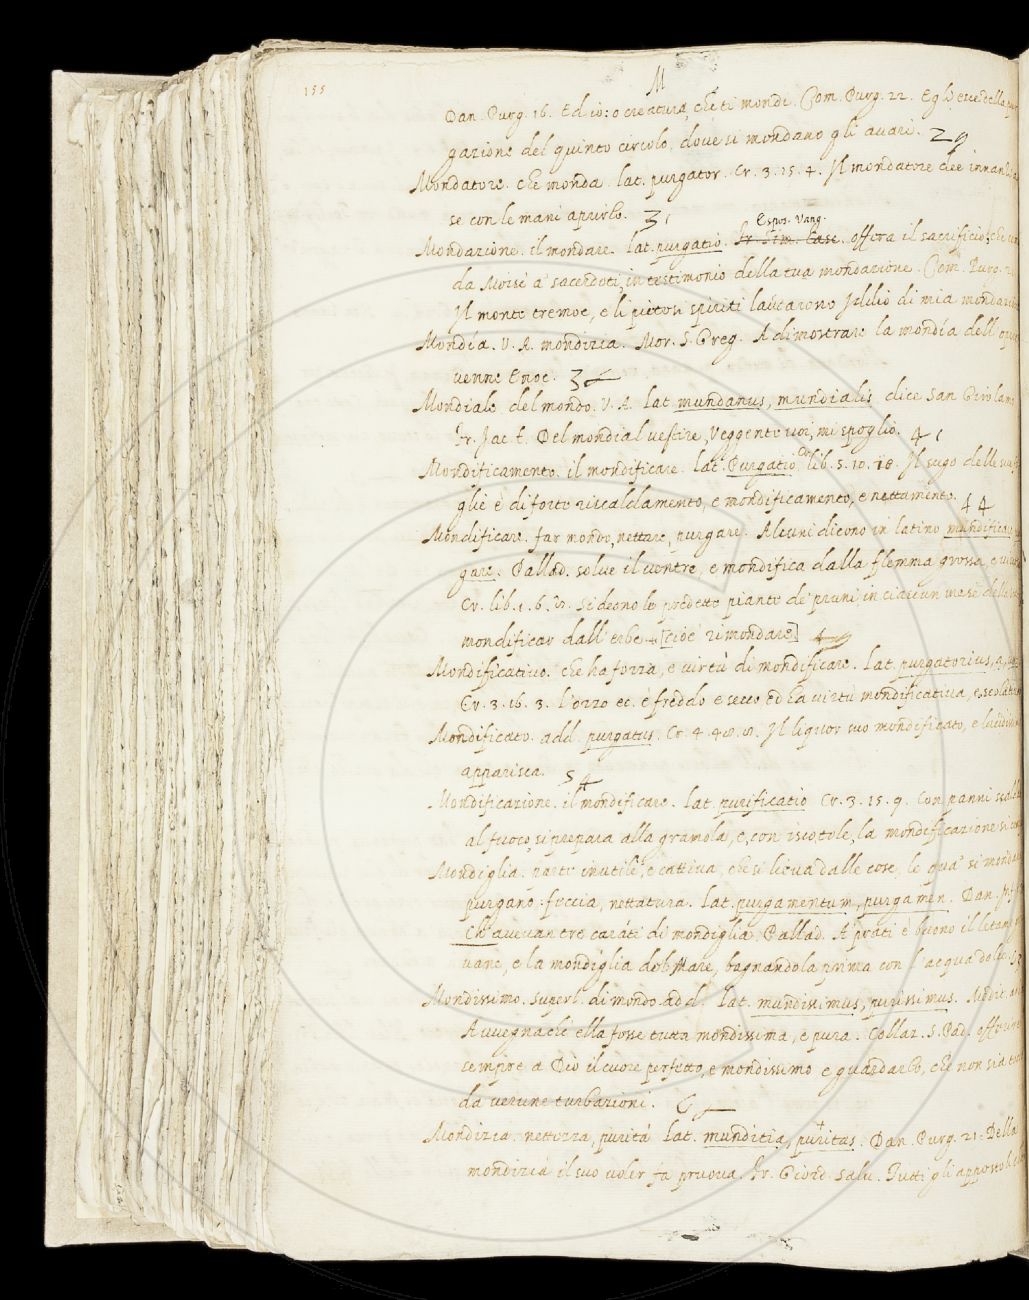 155
M
Dan. Purg. 16. Ed io: o creatura, che ti mondi. Com. Purg. 22. Egli era della pur
gazione del quinto circolo, dove si mondano gli avari. 29
Mondatore. che monda. lat. purgator. Cr. 3. 15. 4. Il mondatore dee innanzi
se con le mani aprirlo. 31
Espos. Vang.
Mondazione. il mondare. lat. purgatio. Fr. Sim. Casc. offera il sacrificio, che
da Moisè a' sacerdoti, in testimonio della tua mondazione. Com. Purg. 2
Il monte tremoe, e li pietosi spiriti laudarono Iddio di mia mondazio
Mondía. V. A. mondizia. Mor. S. Greg. A dimostrare la mondía dell' ope
venne Enoc. 3
Mondiale. del mondo. V. A. lat. mundanus, mundialis dice San Girolamo
Fr. Jac. t. Del mondial vestire, Veggente voi, mi spoglio. 41
Mondificamento. il mondificare. lat. Purgatio. Cr. lib. 5. 10. 18. Il sugo delle
glie è di forte riscaldamento, e mondificamento, e nettamento. 44
Mondificare. far mondo, nettare, purgare. Alcuni dicono in latino mundificare
gare. Pallad. solve il ventre, e mondifica dalla flemma grossa, e
Cr. lib. 1. 6. Si deono le predette piante de' pruni, in ciascun mese della
mondificar dall' erbe. [cioè rimondare]
Mondificativo. che ha forza, e virtù di mondificare. lat. purgatorius, a,
Cr. 3. 16. 3. L'orzo ec. è freddo e secco ed ha virtù mondificativa, e
Mondificato. add. purgatus. Cr. 4. 48. Il liquor suo mondificato, e
apparisca. 54
Mondificazione. il mondificare. lat. purificatio Cr. 3. 15. 9. Con panni
al fuoco, si prepara alla gramola, e, con iscotole, la mondificazione si
Mondiglia. parte inutile, e cattiva, che si lieva dalle cose, le qua' si mondano
purgano: feccia, nettatura. lat. purgamentum, purgamen. Dan. Inf.
Ch' avevan tre carati di mondiglia. Pallad. A' prati è buono il letame
vane, e la mondiglia del Mare, bagnandola prima con l'acqua dolce. 5
Mondissimo. superl. di mondo. add. lat. mundissimus, purissimus.
Avvegnachè ella fosse tutta mondissima, e pura. Collaz. S. Pad. offerire
sempre a Dio il cuore perfetto, e mondissimo e guardarlo, che non sia
da verune turbazioni. 6
Mondizia. nettezza, purità lat. munditia, puritas. Dan. Purg. 21. Della
mondizia il suo voler fa pruova. Fr. Giord. Salv. Tutti gli appostoli